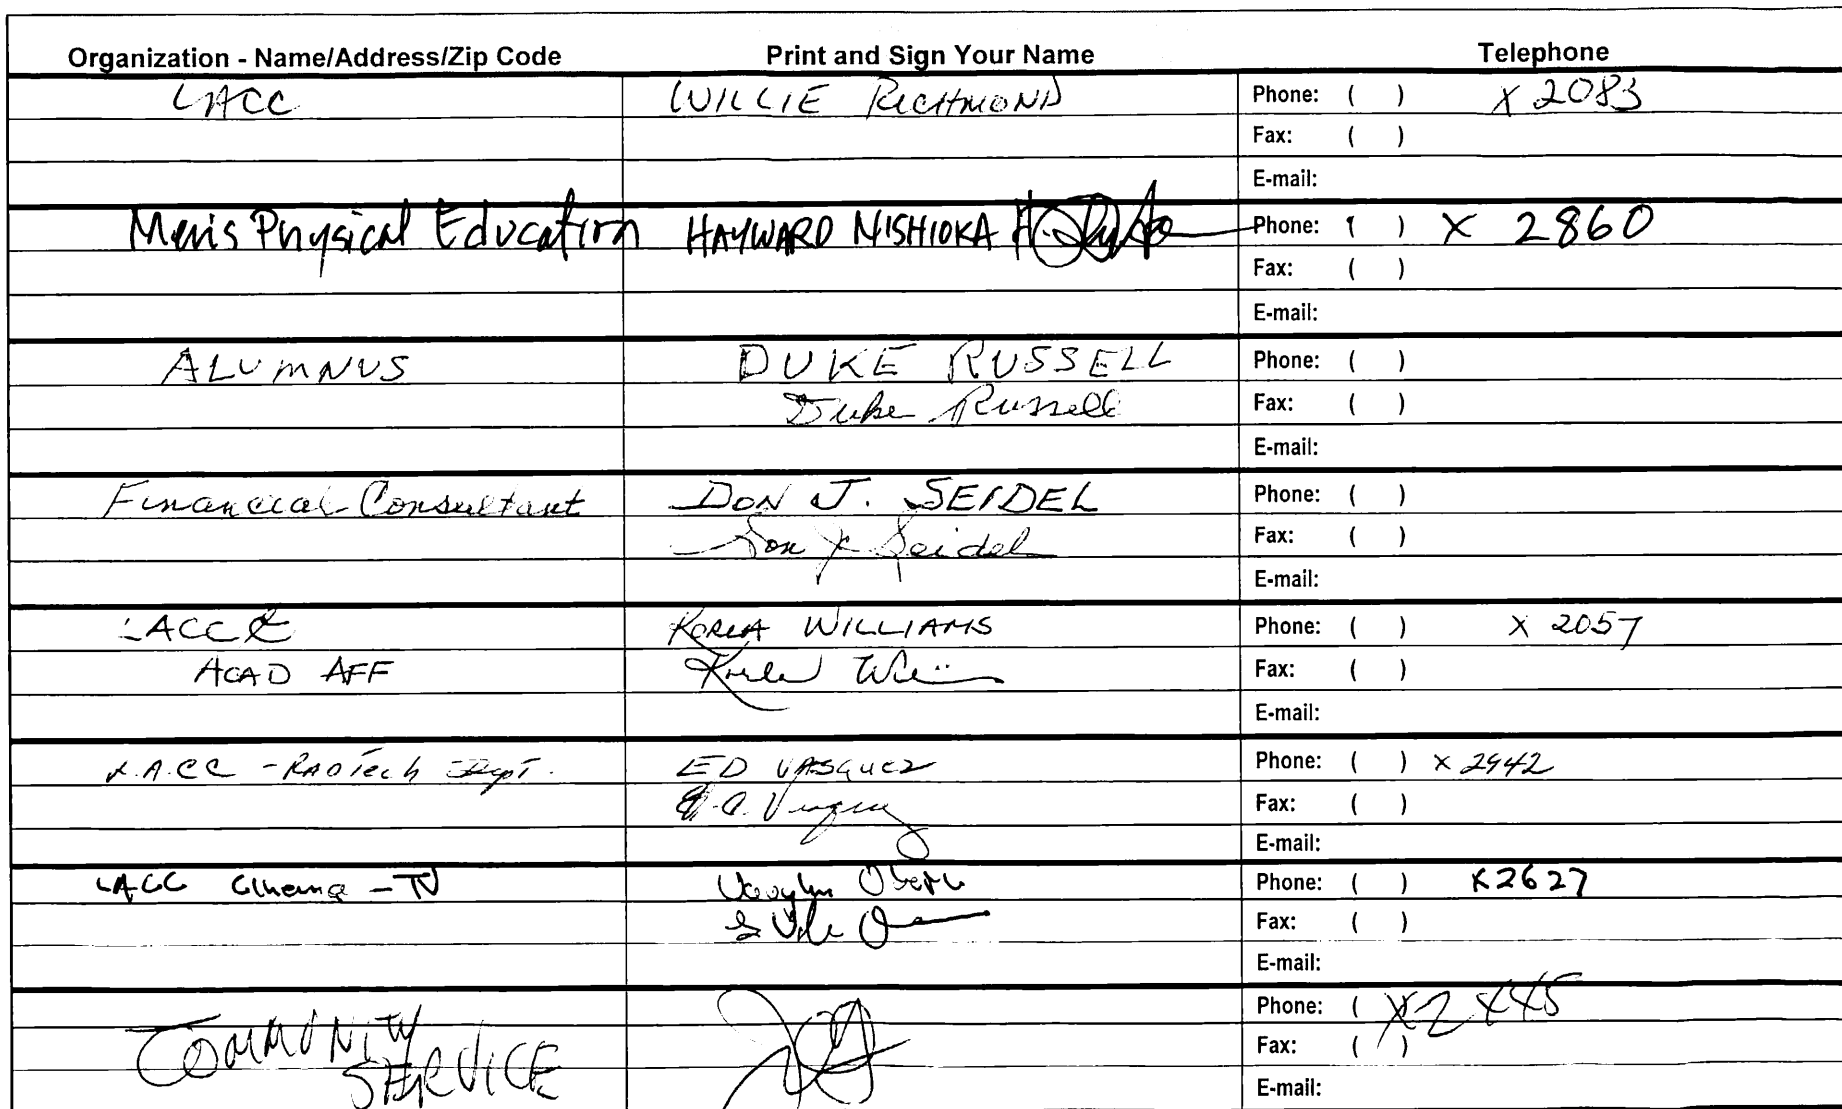 Organization - Name/Address/Zip Code Print and Sign Your Name Telephone
LACC WILLIE RICHMOND Phone: ( ) X 2083
Fax: ( )
E-mail:
Men's Physical Education HAYWARD NISHIOKA Phone: ( ) X 2860
Fax: ( )
E-mail:
ALUMNUS DUKE RUSSELL Phone: ( )
Duke Russell Fax: ( )
E-mail:
Financial Consultant DON J. SEIDEL Phone: ( )
Don J Seidel Fax: ( )
E-mail:
LACC WILLIAMS Phone: ( ) X 2057
ACAD AFF Fax: ( )
E-mail:
L.A.CC - RADTech Dept. ED VASQUEZ Phone: ( ) X 2942
Fax: ( )
E-mail:
LACC Cinema - TV Vaughn Phone: ( ) X2627
Fax: ( )
E-mail:
COMMUNITY Phone: (
SERVICE Fax: ( )
E-mail: